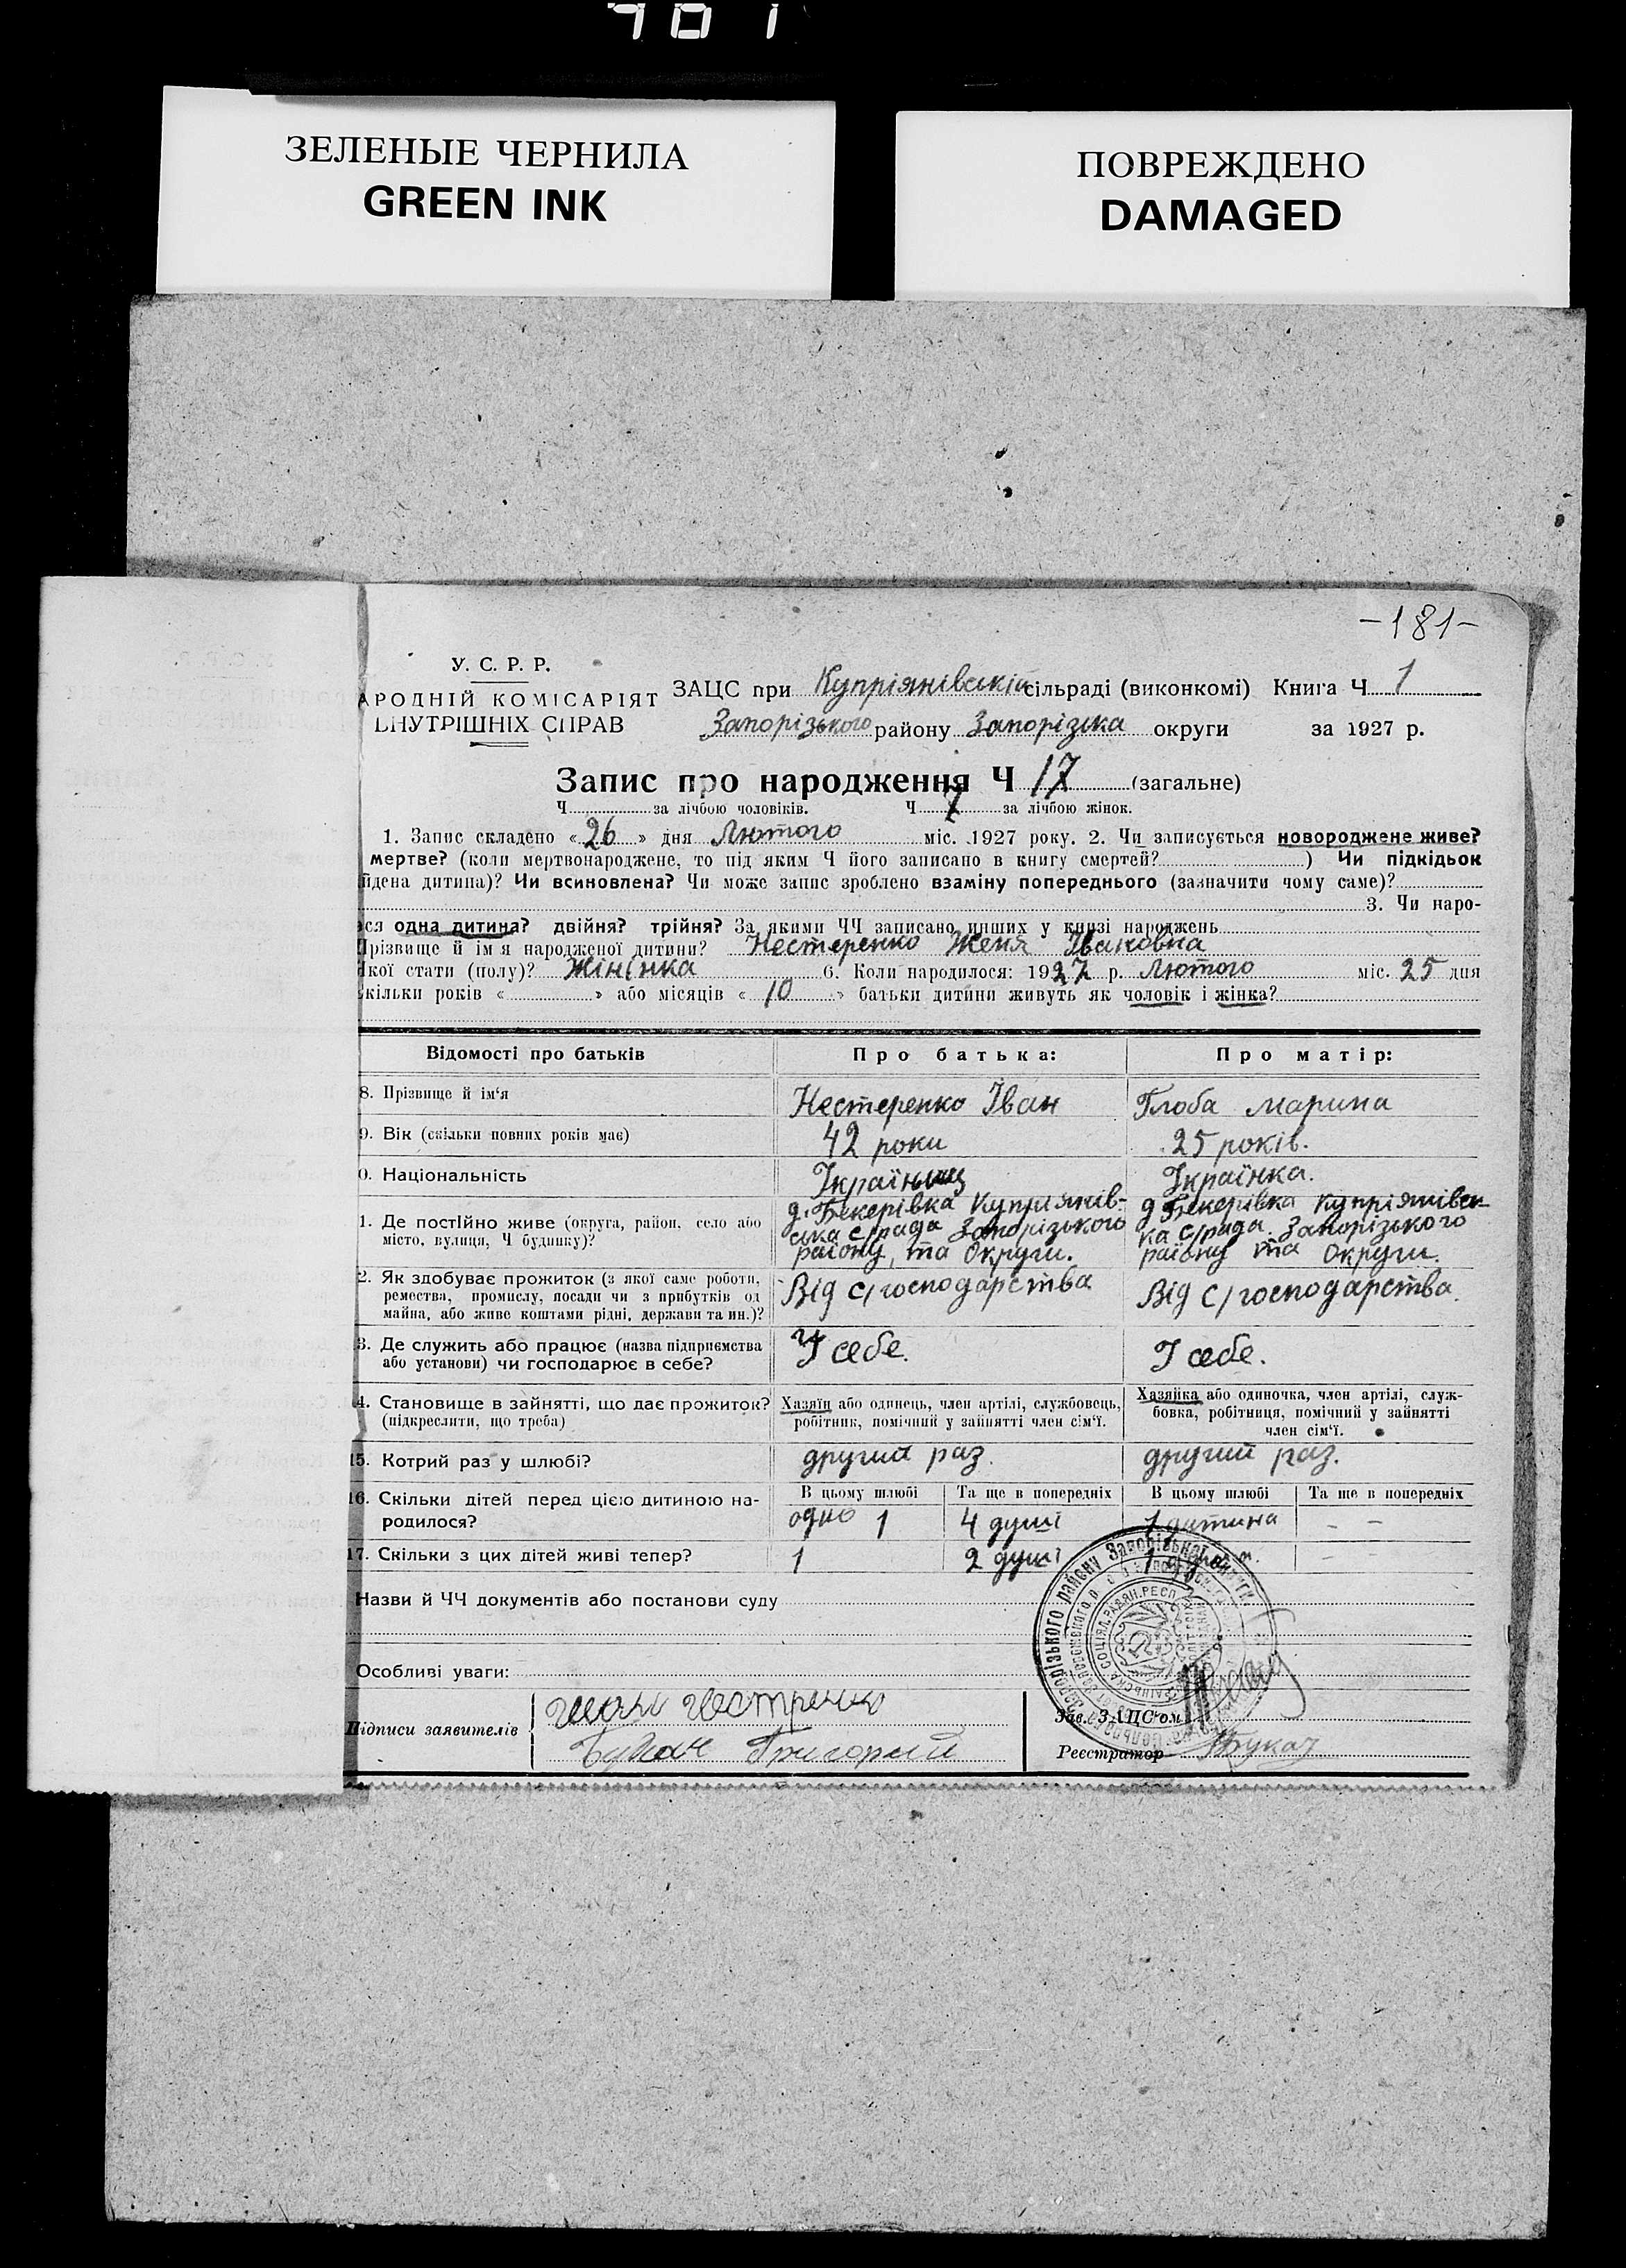 ЗЕЛЕНЫЕ ЧЕРНИЛА
GREEN INK
ПОВРЕЖДЕНО
DAMAGED
-181-
У. С. Р. Р.
АРОДНІЙ КОМІСАРІЯТ
ВНУТРІШНІХ СПРАВ
ЗАЦС при Купріянівській сільраді (виконкомі) Книга Ч 1
Запорізького району Запорізька округи за 1927 р.
Запис про народження Ч 17 (загальне)
Ч за лічбою чоловіків. Ч 7 за лічбою жінок.
1. Запис складено «26» дня Лютого міс. 1927 року. 2. Чи записується новороджене живе?
мертве? (коли мертвонароджене, то під яким Ч його записано в книгу смертей? ) Чи підкідьок
йдена дитина)? Чи всиновлена? Чи може запис зроблено взаміну попереднього (зазначити чому саме)?
3. Чи наро-
ся одна дитина? двійня? трійня? За якими ЧЧ записано инших у книзі народжень
Прізвище й ім'я народженої дитини? Нестеренко Женя Івановна
Якої стати (полу)? Жіні́нка 6. Коли народилося: 1927 р. Лютого міс. 25 дня
кільки років « » або місяців « 10 » батьки дитини живуть як чоловік і жінка?
Відомості про батьків Про батька: Про матір:
8. Прізвище й ім'я Нестеренко Іван Глоба Марина
9. Вік (скільки повних років має) 42 роки 25 років.
0. Національність Українец Українка.
1. Де постійно живе (округа, район, село або місто, вулиця, Ч будинку)?
д. Бекерівка Купріянів-
ська с/рада Запорізького
району, та Округи.
д Бекерівка Купріянівсь-
ка с/рада Запорізького
району та Округи.
2. Як здобуває прожиток (з якої саме роботи,
ремества, промислу, посади чи з прибутків од
майна, або живе коштами рідні, держави та ин.)?
Від с/господарства Від с/господарства.
3. Де служить або працює (назва підприємства
або установи) чи господарює в себе?
У себе. У себе.
4. Становище в зайнятті, що дає прожиток?
(підкреслити, що треба)
Хазяїн або одинець, член артілі, службовець,
робітник, помічний у зайнятті член сім'ї.
Хазяйка або одиночка, член артілі, служ-
бовка, робітниця, помічний у зайнятті
член сім'ї.
15. Котрий раз у шлюбі? другий раз. другий раз.
16. Скільки дітей перед цією дитиною на-
родилося?
В цьому шлюбі Та ще в попередніх В цьому шлюбі Та ще в попередніх
одно 1 4 душі 1 дитина - -
17. Скільки з цих дітей живі тепер? 1 2 душі 1 - -
Назви й ЧЧ документів або постанови суду
Особливі уваги:
Підписи заявителів
Григорий
Зав. ЗАЦС'ом
Реєстратор Букач